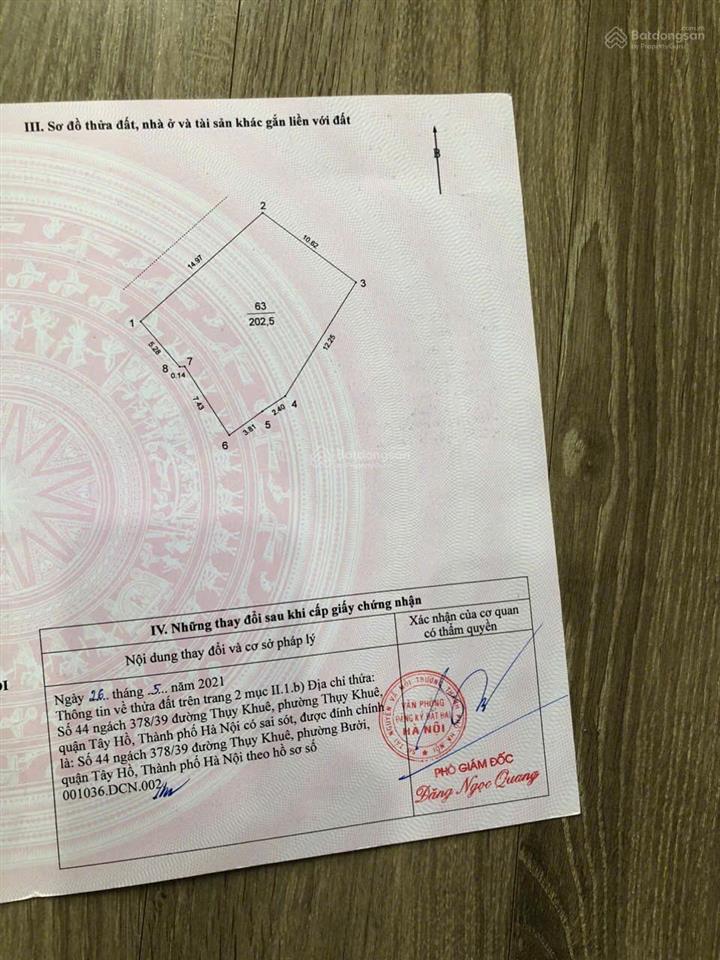 Batdongsan
.com.vn
by PropertyGuru
III. Sơ đồ thửa đất, nhà ở và tài sản khác gắn liền với đất
B
2
14.97
10.62
3
63
202,5
1
5.28
12.25
7
8
0.14
7.43
4
2.40
5
3.81
6
Batdongsan
IV. Những thay đổi sau khi cấp giấy chứng nhận
Nội dung thay đổi và cơ sở pháp lý
Xác nhận của cơ quan
có thẩm quyền
ỘI
Ngày 26 tháng 5 năm 2021
Thông tin về thửa đất trên trang 2 mục II.1.b) Địa chỉ thửa:
Số 44 ngách 378/39 đường Thụy Khuê, phường Thụy Khuê,
quận Tây Hồ, Thành phố Hà Nội có sai sót, được đính chính
là: Số 44 ngách 378/39 đường Thụy Khuê, phường Bưởi,
quận Tây Hồ, Thành phố Hà Nội theo hồ sơ số
001036.DCN.002
VĂN PHÒNG
ĐĂNG KÝ ĐẤT ĐAI
HÀ NỘI
PHÓ GIÁM ĐỐC
Đặng Ngọc Quang